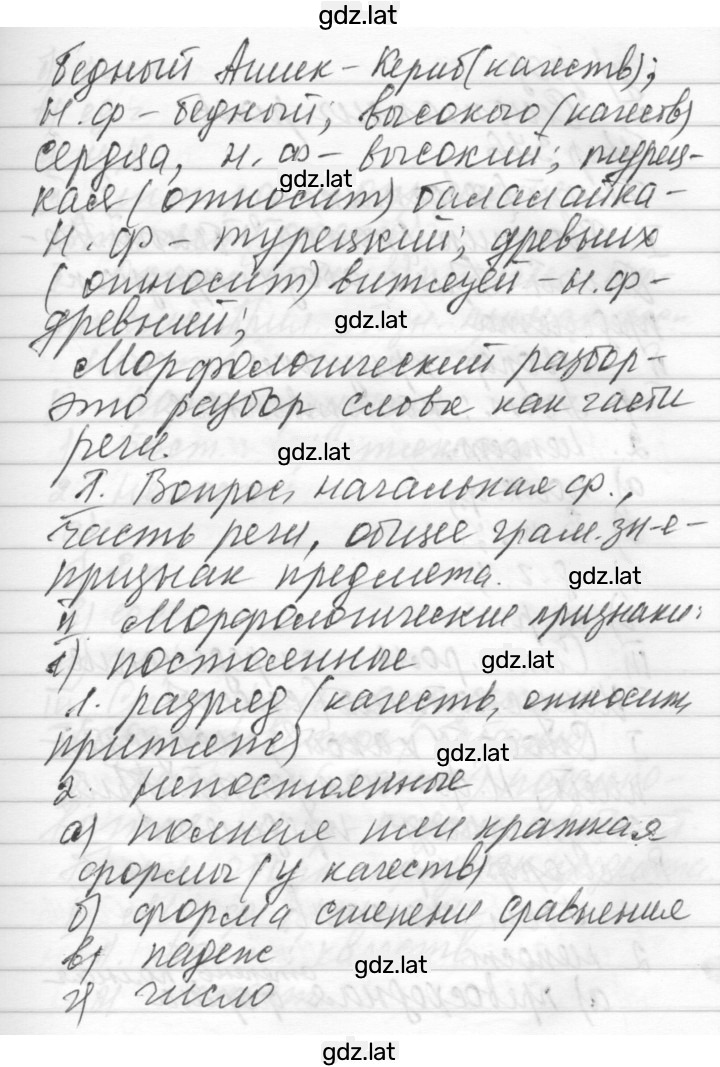 gdz.lat
бедный Ашик-Кериб (качеств);
н.ф - бедный; высокого (качеств)
сердца, н.ф - высокий; турец-
gdz.lat
кая (относит) балалайка -
н.ф - турецкий; древних
(относит) витязей - н.ф -
древний;
gdz.lat
Морфологический разбор -
это разбор слова как части
речи.
gdz.lat
I. Вопрос, начальная ф.,
часть речи, общее грам. зн-е -
признак предмета.
gdz.lat
II Морфологические признаки:
1) постоянные
gdz.lat
1. разряд (качеств, относит,
притяж)
gdz.lat
2. непостоянные
а) полная или краткая
формы (у качеств)
б) форма степени сравнения
в) падеж
gdz.lat
г) число
gdz.lat